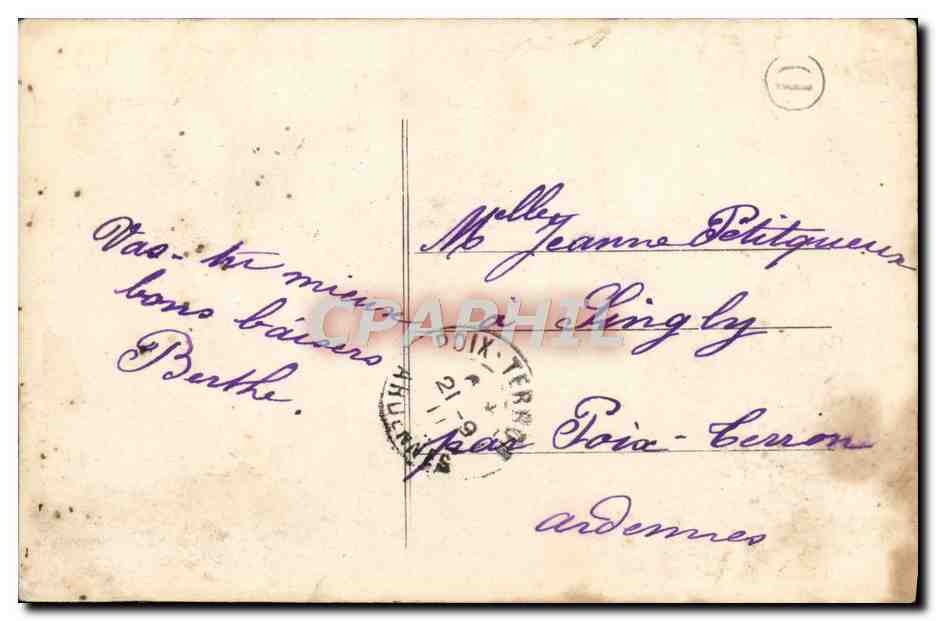 Vas-tu mieux
bons baisers
Berthe.
Melle Jeanne Petitqueux
à Singly
par Poix-Terron
ardennes
POIX-TERRON
21-9
11
ARDENNES
CPARHIL